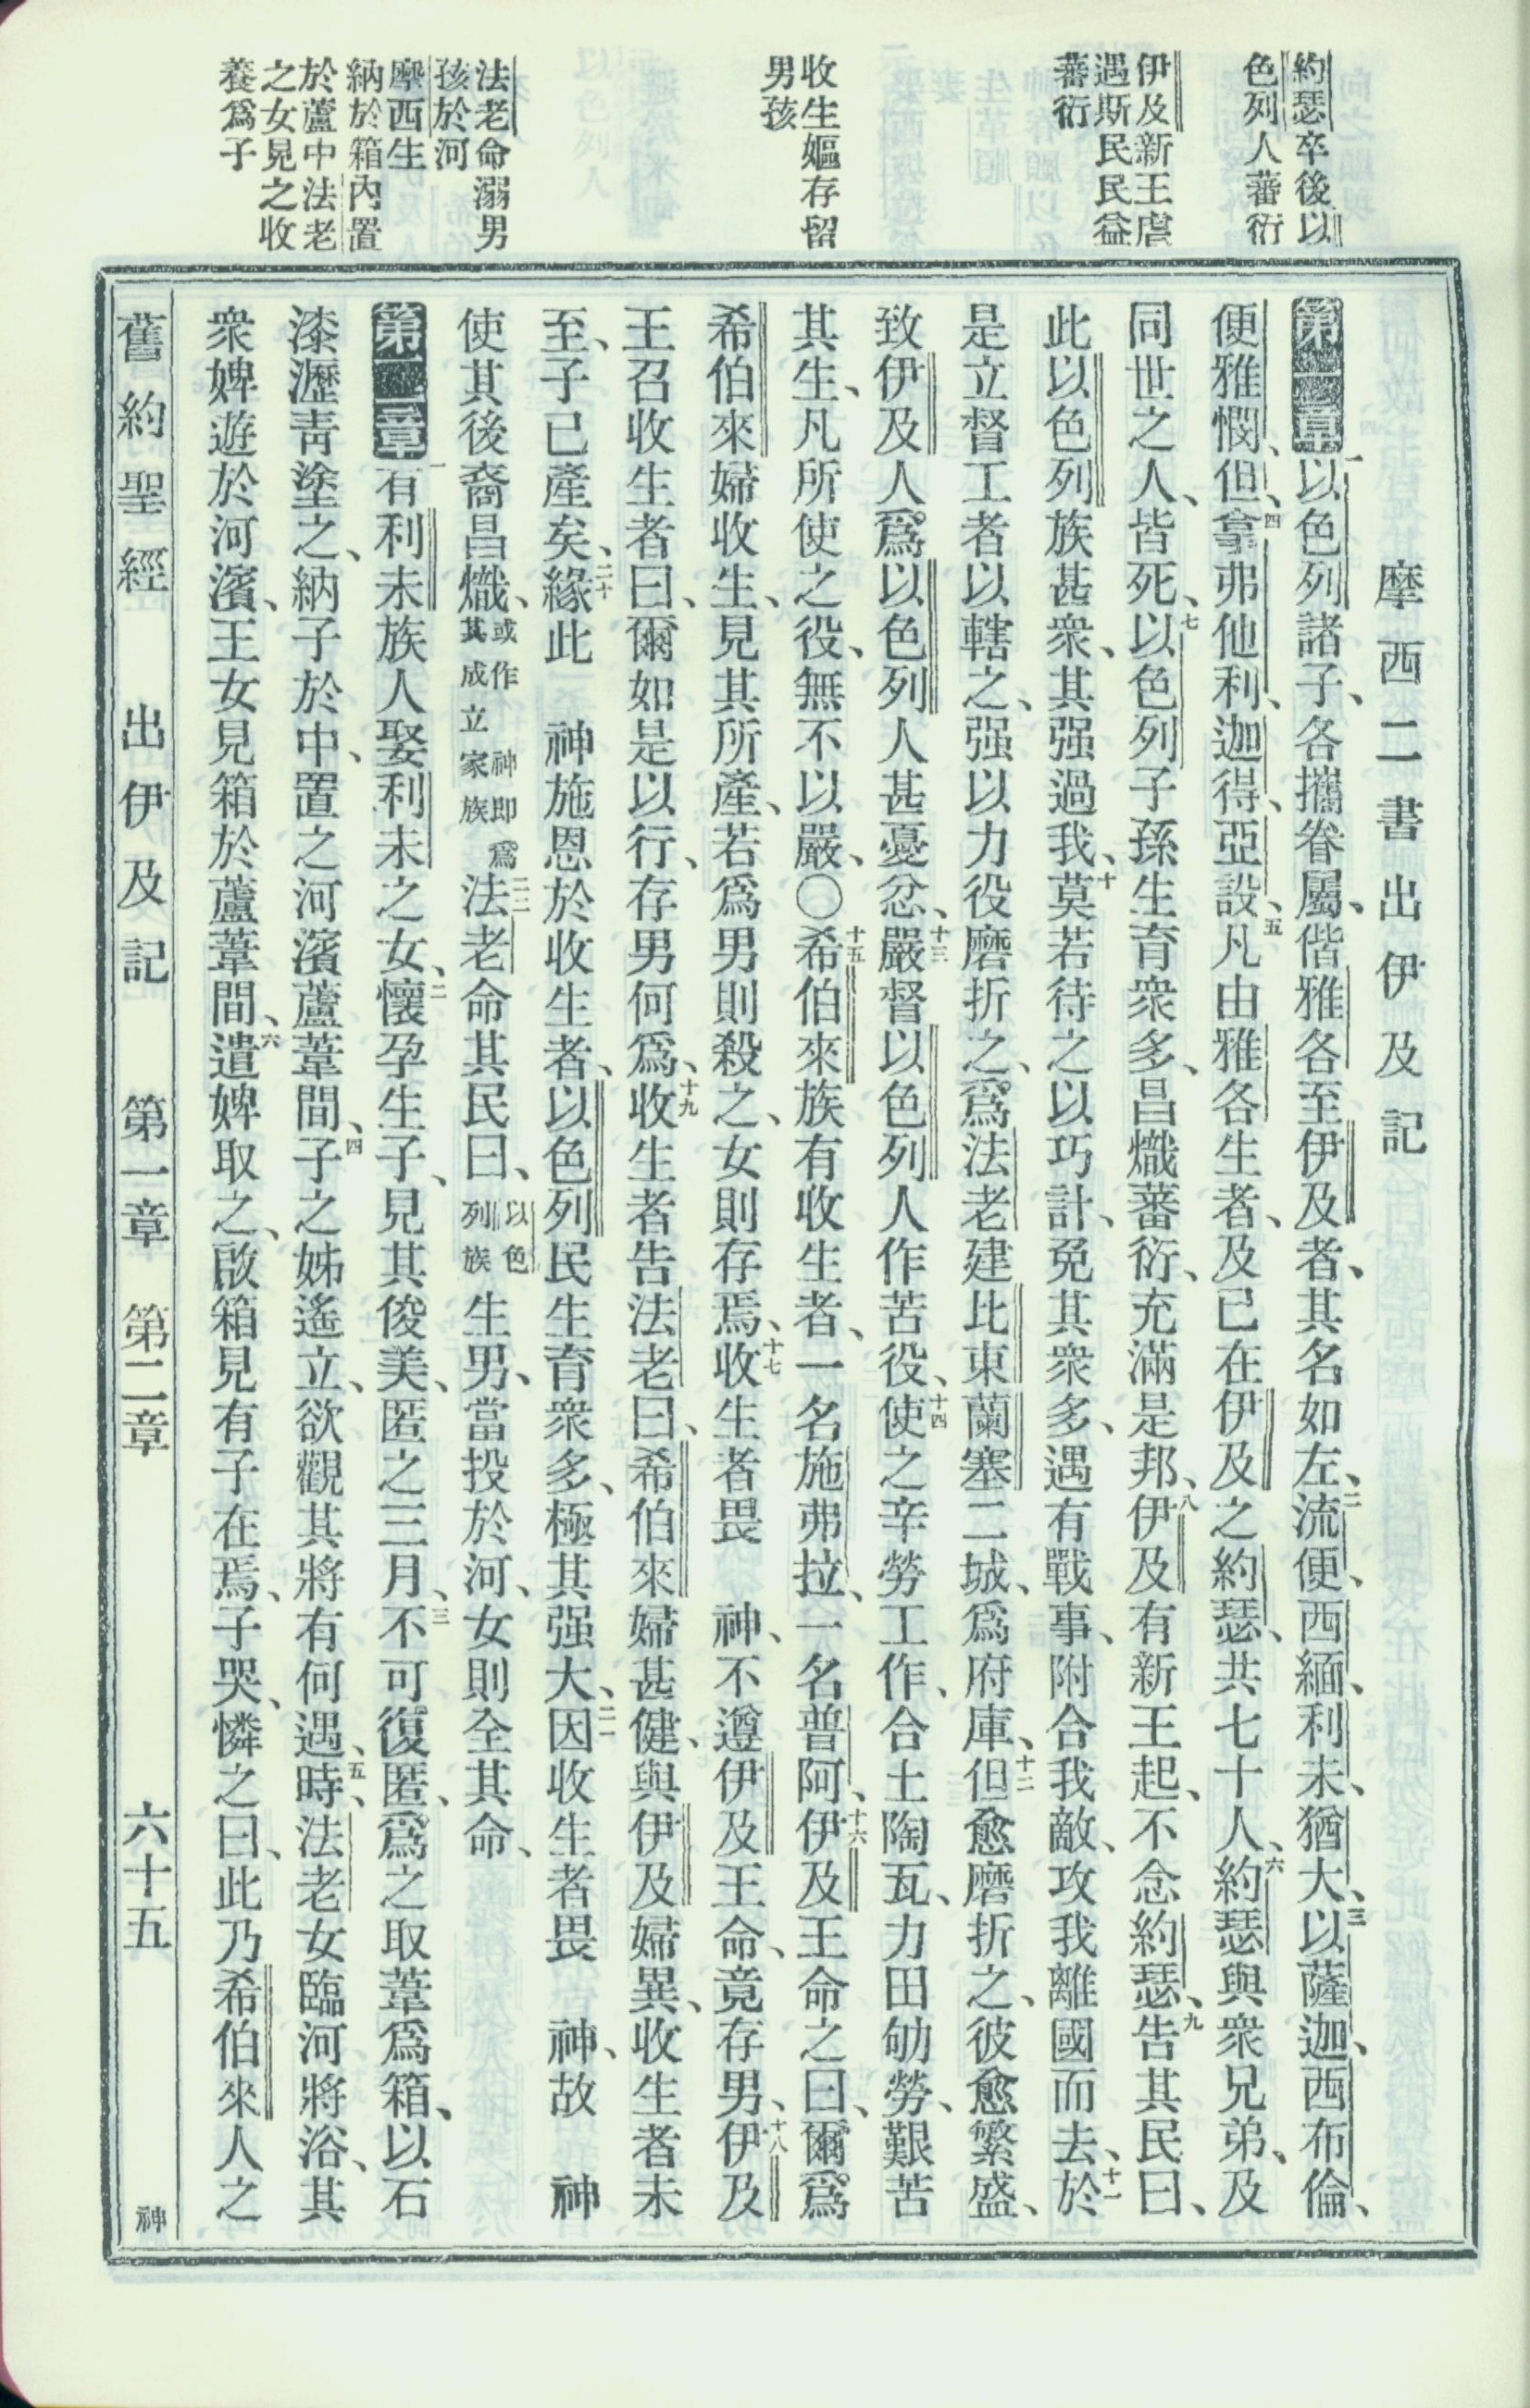 約瑟卒後以
色列人蕃衍
伊及新王虐
遇斯民民益
蕃衍
收生嫗存留
男孩
法老命溺男
孩於河
摩西生
納於箱內置
於蘆中法老
之女見之收
養爲子
摩西二書出伊及記
第一章一以色列諸子、各攜眷屬、偕雅各至伊及者、其名如左、二流便、西緬、利未、猶大、三以薩迦、西布倫、
便雅憫、但、四拿弗他利、迦得、亞設、五凡由雅各生者、及已在伊及之約瑟、共七十人、六約瑟與衆兄弟、及
同世之人、皆死、七以色列子孫生育衆多、昌熾蕃衍、充滿是邦、八伊及有新王起、不念約瑟、九告其民曰、
此以色列族甚衆、其强過我、十莫若待之以巧計、免其衆多、遇有戰事、附合我敵、攻我離國而去、十一於
是立督工者以轄之、强以力役磨折之、爲法老建比東蘭塞二城、爲府庫、十二但愈磨折之、彼愈繁盛、
致伊及人爲以色列人甚憂忿、十三嚴督以色列人作苦役、十四使之辛勞工作、合土陶瓦、力田劬勞、艱苦
其生、凡所使之役、無不以嚴、○十五希伯來族有收生者、一名施弗拉、一名普阿、十六伊及王命之曰、爾爲
希伯來婦收生、見其所產、若爲男則殺之、女則存焉、十七收生者畏 神、不遵伊及王命、竟存男、十八伊及
王召收生者曰、爾如是以行、存男何爲、十九收生者告法老曰、希伯來婦甚健、與伊及婦異、收生者未
至、子已產矣、二十緣此 神施恩於收生者、以色列民生育衆多、極其强大、二一因收生者畏 神、故 神
使其後裔昌熾、或作 神卽爲其成立家族二二法老命其民曰、以色列族生男、當投於河、女則全其命、
第二章一有利未族人娶利未之女、二懷孕生子、見其俊美、匿之三月、三不可復匿、爲之取葦爲箱、以石
漆瀝青塗之、納子於中、置之河濱蘆葦間、四子之姊遙立、欲觀其將有何遇、五時、法老女臨河將浴、其
衆婢遊於河濱、王女見箱於蘆葦間、六遣婢取之、啟箱見有子在焉、子哭、憐之曰、此乃希伯來人之
舊約聖經 出伊及記 第一章 第二章 六十五 神